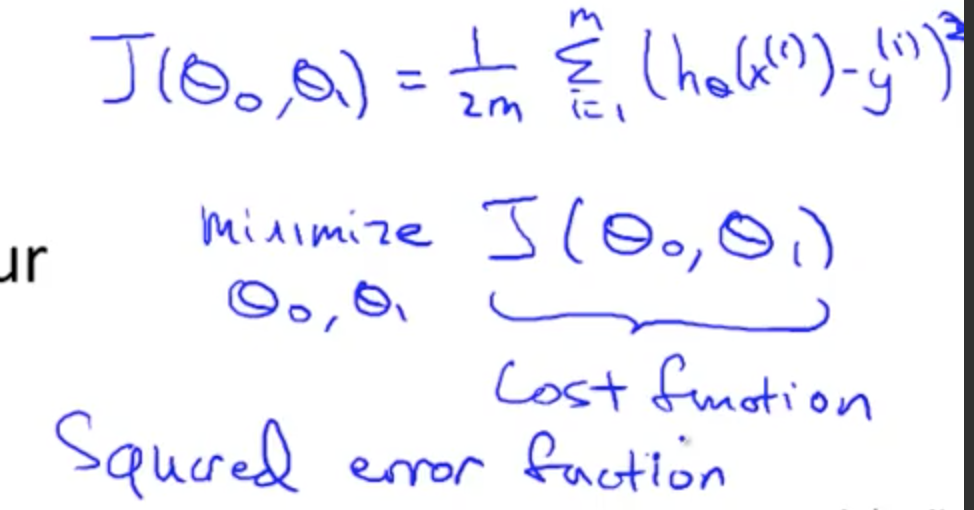 J(θ₀,θ₁) = 1/2m Σᵢ₌₁ᵐ (hθ(x⁽ⁱ⁾)-y⁽ⁱ⁾)²
ur
minimize J(θ₀,θ₁)
θ₀,θ₁
Cost function
Squared error function